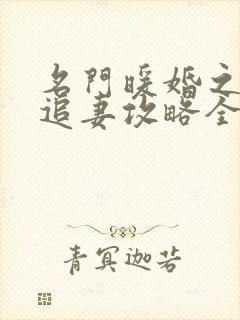 名門暖婚之
追妻攻略全
青冥迦若